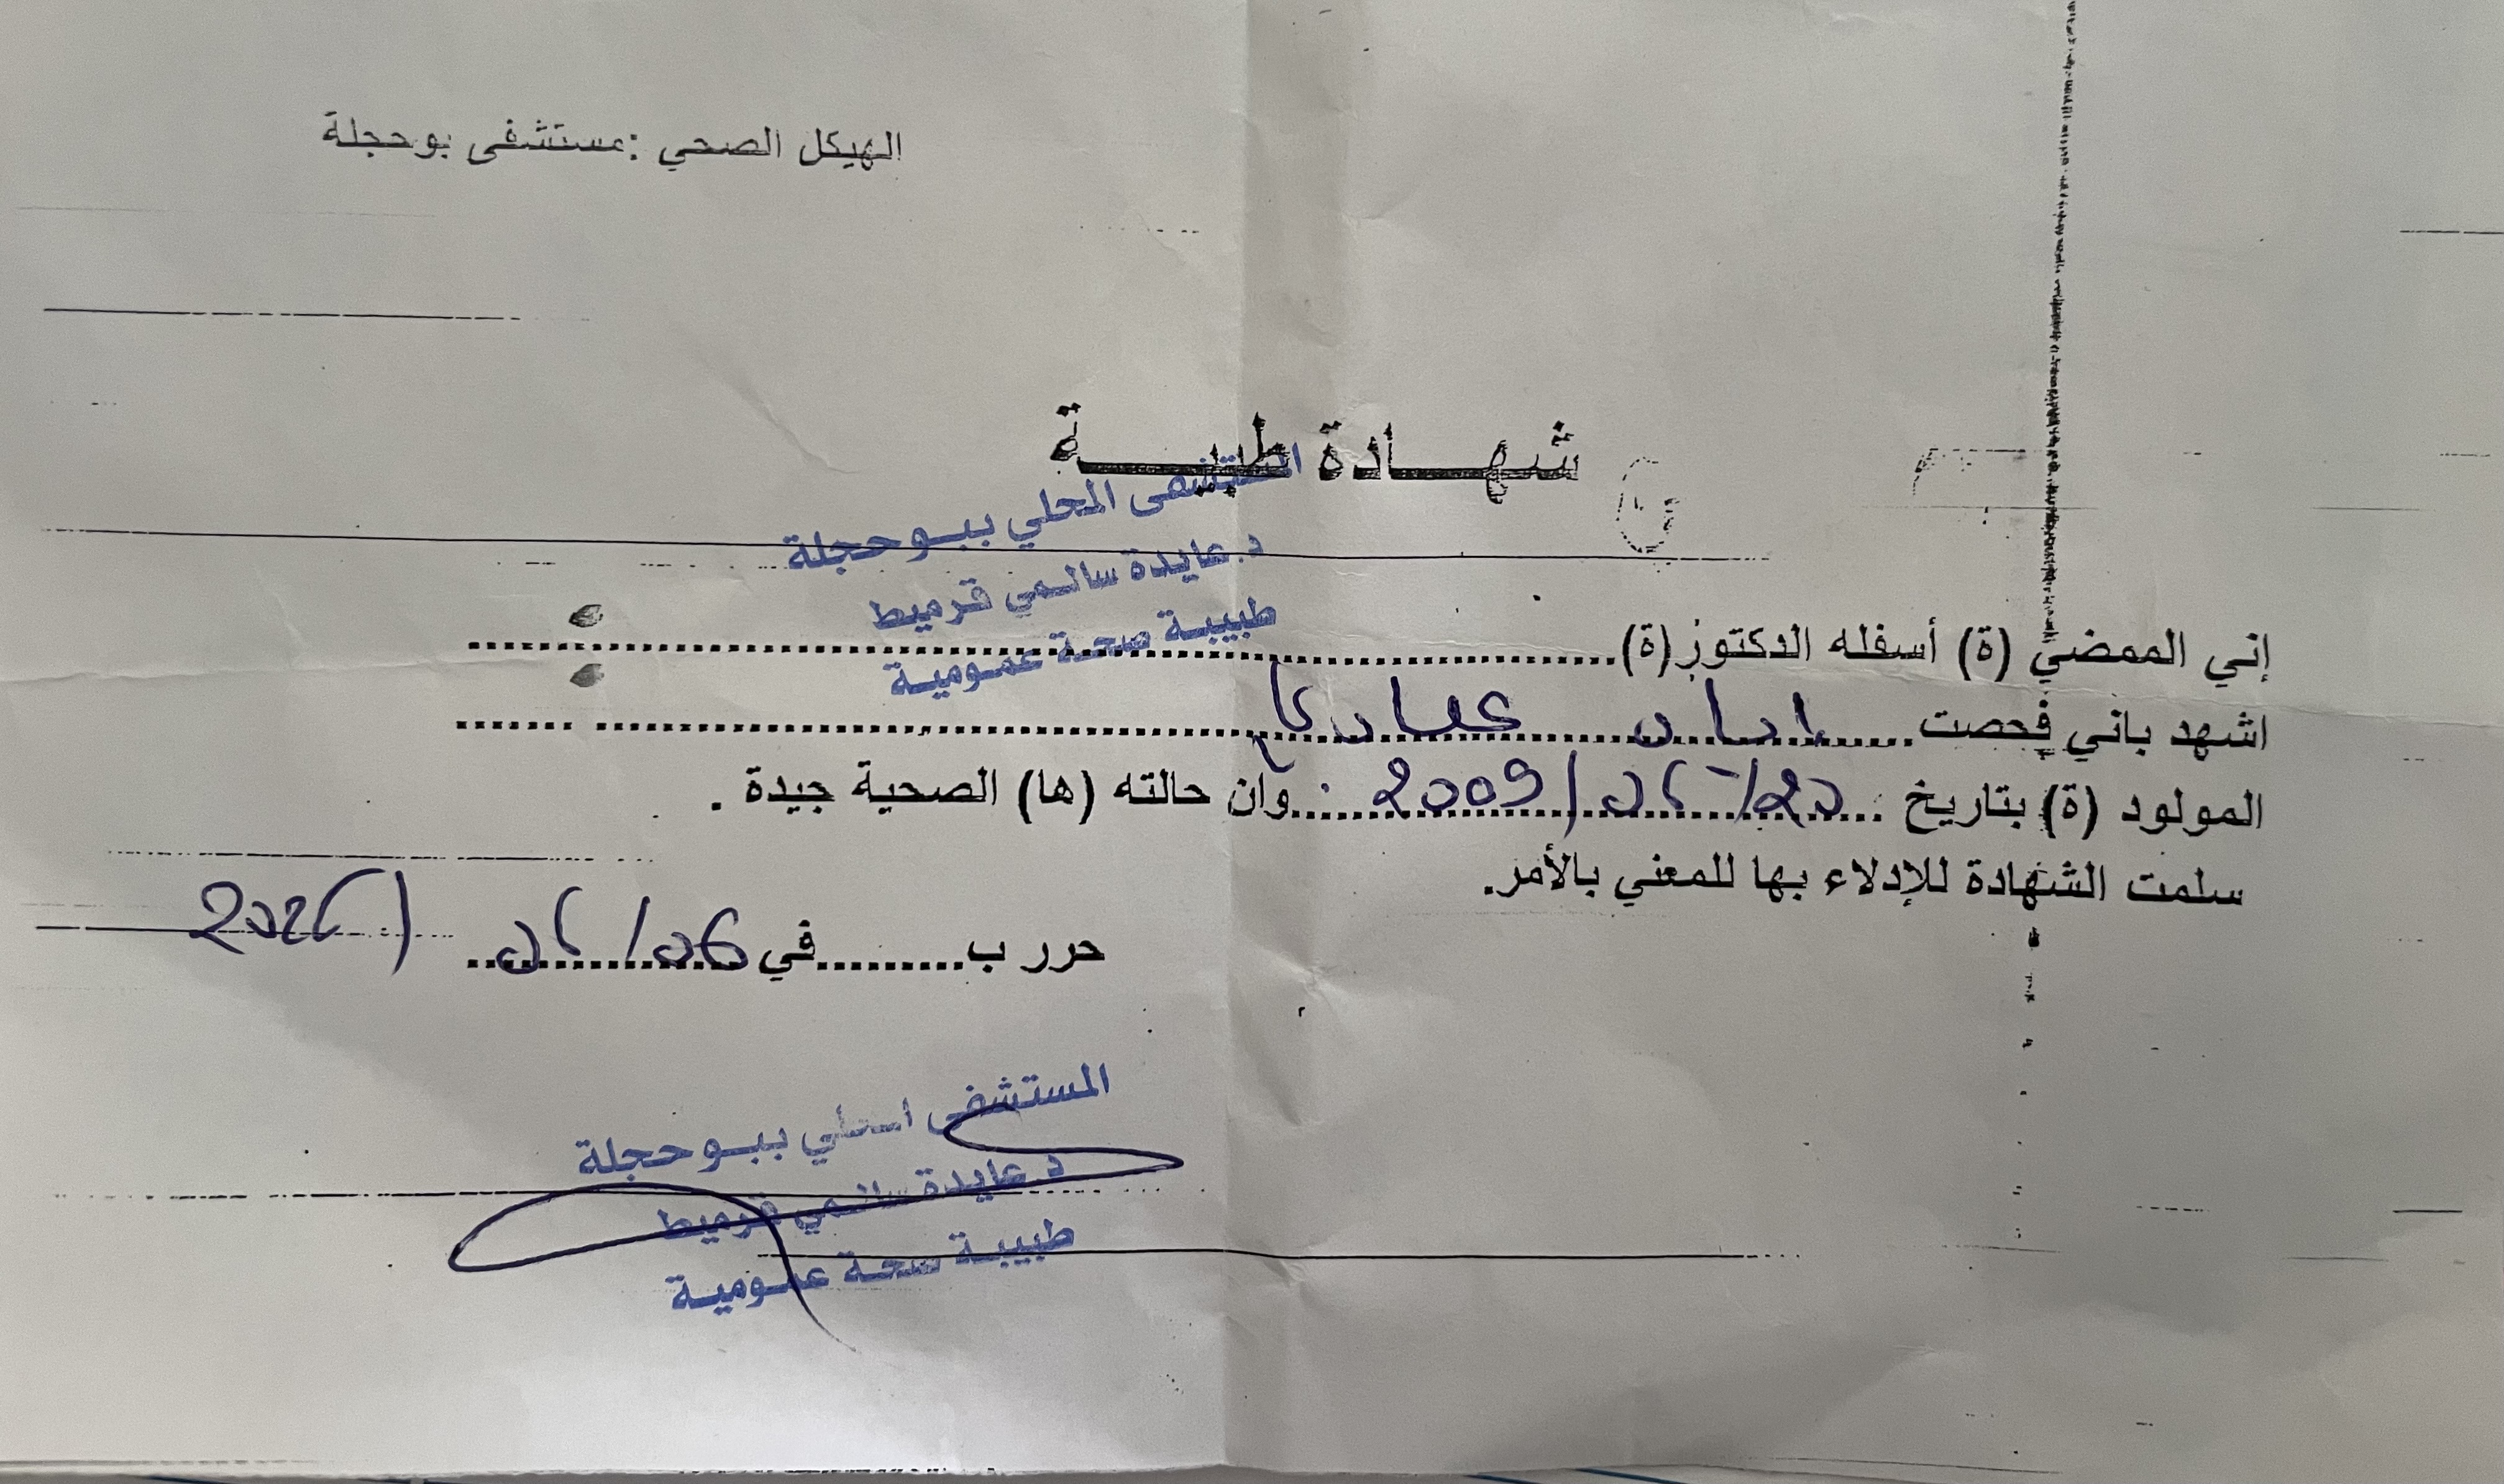 الهيكل الصحي :مستشفى بوحجلة
شهادة طبية
المستشفى المحلي ببوحجلة
د.عايدة سالمي قرميط
طبيبة صحة عمومية
إني الممضي (ة) أسفله الدكتور(ة)
اشهد باني فحصت
المولود (ة) بتاريخ 2009/ وان حالته (ها) الصحية جيدة .
سلمت الشهادة للإدلاء بها للمعني بالأمر.
حرر ب.........في
المستشفى المحلي ببوحجلة
د.عايدة سالمي قرميط
طبيبة صحة عمومية